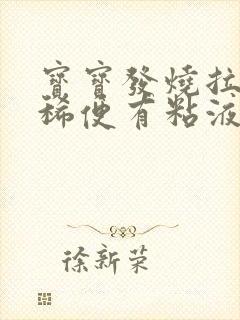 寶寶發燒拉
稀便有粘液
徐新荣